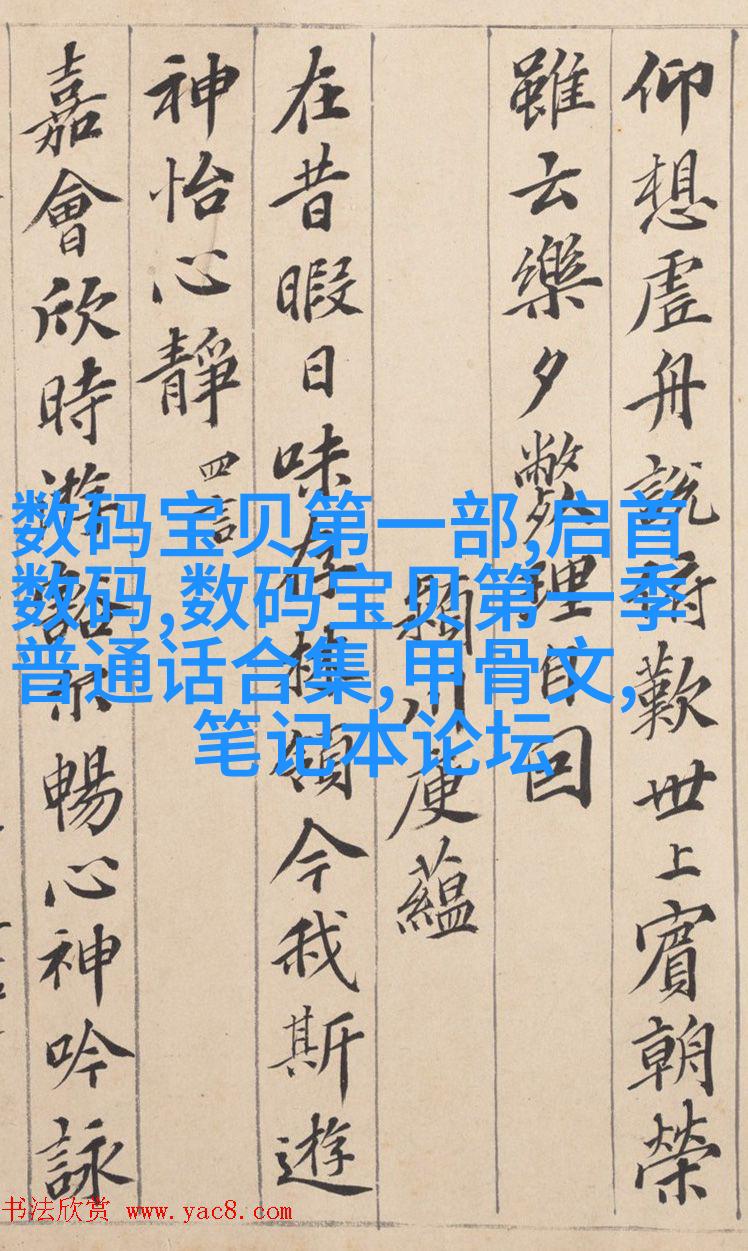 仰想虗舟說俯歎世上賓朝榮
雖云樂夕斃理自回
潁川庾蘊
在昔暇日味存林領今我斯遊
神怡心靜 四言
嘉會欣時遊豁尓暢心神吟詠
数码宝贝第一部,启首
数码,数码宝贝第一季
普通话合集,甲骨文,
笔记本论坛
书法欣赏 www.yac8.com